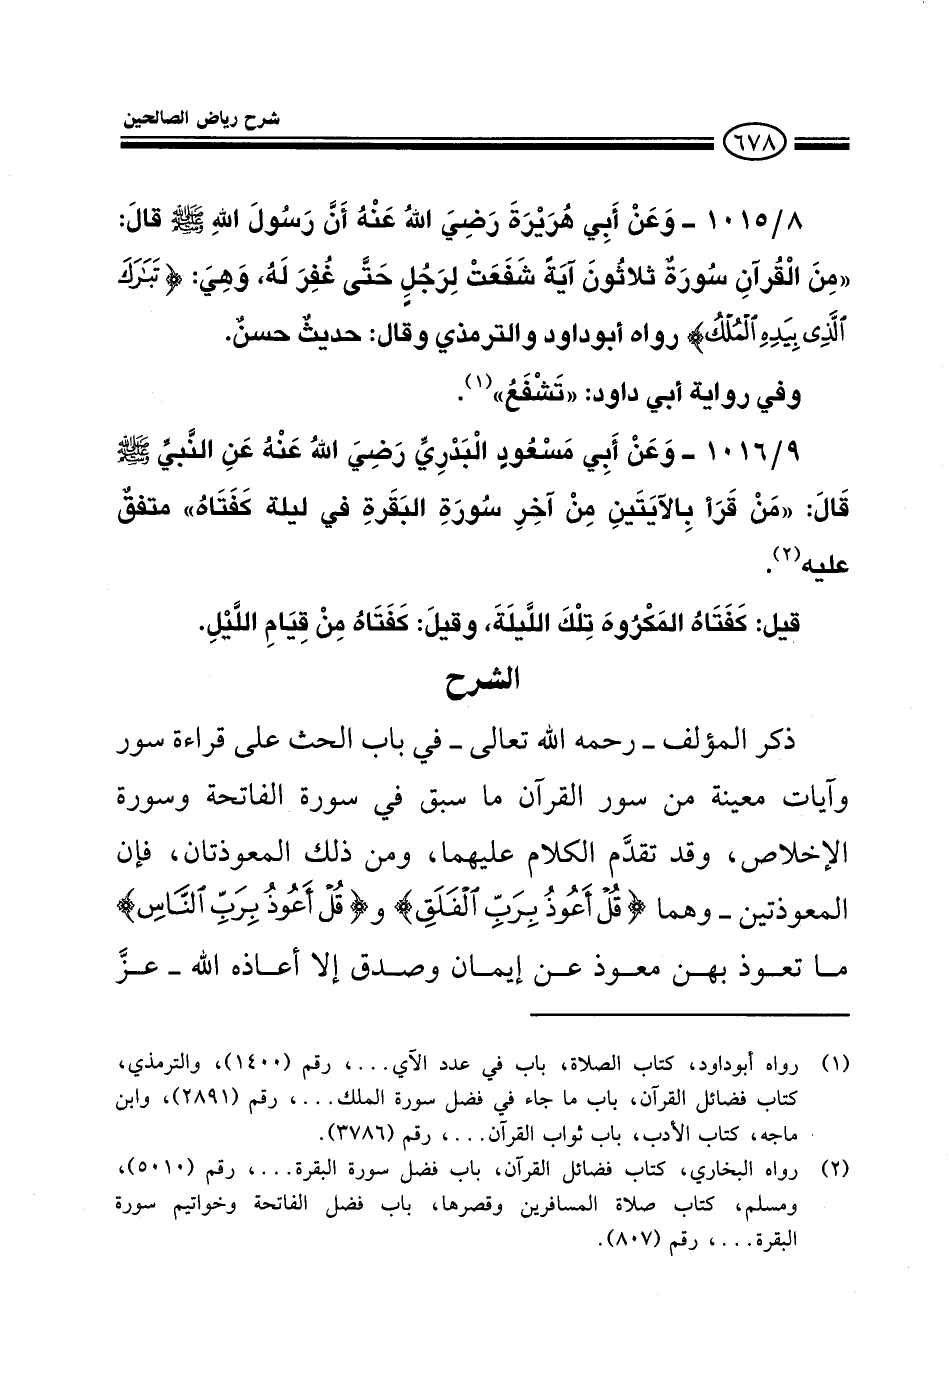 شرح رياض الصالحين
٦٧٨
١٠١٥/٨ ـ وَعَنْ أَبِي هُرَيْرَةَ رَضِيَ اللهُ عَنْهُ أَنَّ رَسُولَ اللهِ ﷺ قالَ:
«مِنَ الْقُرآنِ سُورَةٌ ثلاثُونَ آيَةً شَفَعَتْ لِرَجُلٍ حَتَّى غُفِرَ لَهُ، وَهِيَ: ﴿تَبَٰرَكَ
ٱلَّذِى بِيَدِهِ ٱلْمُلْكُ﴾ رواه أبوداود والترمذي وقال: حديثٌ حسنٌ.
وفي رواية أبي داود: «تَشْفَعُ»(١).
١٠١٦/٩ ـ وَعَنْ أَبِي مَسْعُودٍ الْبَدْرِيِّ رَضِيَ اللهُ عَنْهُ عَنِ النَّبيِّ ﷺ
قَالَ: «مَنْ قَرَأ بِالآيَتَينِ مِنْ آخِرِ سُورَةِ البَقَرةِ في ليلة كَفَتَاهُ» متفقٌ
عليه(٢).
قيل: كَفَتَاهُ المَكْرُوهَ تِلْكَ اللَّيلَةَ، وقيلَ: كَفَتَاهُ مِنْ قِيَامِ اللَّيْلِ.
الشرح
ذكر المؤلف ـ رحمه الله تعالى ـ في باب الحث على قراءة سور
وآيات معينة من سور القرآن ما سبق في سورة الفاتحة وسورة
الإخلاص، وقد تقدَّم الكلام عليهما، ومن ذلك المعوذتان، فإن
المعوذتين ـ وهما ﴿قُلْ أَعُوذُ بِرَبِّ ٱلْفَلَقِ﴾ و﴿قُلْ أَعُوذُ بِرَبِّ ٱلنَّاسِ﴾
ما تعوذ بهن معوذ عن إيمان وصدق إلا أعاذه الله ـ عزَّ
(١) رواه أبوداود، كتاب الصلاة، باب في عدد الآي...، رقم (١٤٠٠)، والترمذي،
كتاب فضائل القرآن، باب ما جاء في فضل سورة الملك...، رقم (٢٨٩١)، وابن
ماجه، كتاب الأدب، باب ثواب القرآن...، رقم (٣٧٨٦).
(٢) رواه البخاري، كتاب فضائل القرآن، باب فضل سورة البقرة...، رقم (٥٠١٠)،
ومسلم، كتاب صلاة المسافرين وقصرها، باب فضل الفاتحة وخواتيم سورة
البقرة...، رقم (٨٠٧).